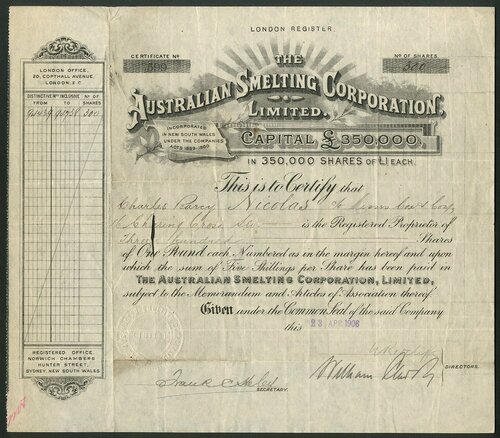 LONDON REGISTER
CERTIFICATE No
No OF SHARES
300
THE
AUSTRALIAN SMELTING CORPORATION
LIMITED.
INCORPORATED
IN NEW SOUTH WALES
UNDER THE COMPANIES
CAPITAL £350,000,
IN 350,000 SHARES OF £1 EACH.
LONDON OFFICE,
20, COPTHALL AVENUE,
LONDON. E.C.
DISTINCTIVE Nos INCLUSIVE
No OF
FROM TO SHARES
300
This is to Certify that
Charles Percy Nicolas
Charing Cross is the Registered Proprietor of
Three hundred Shares
of One Pound each, Numbered as in the margin hereof and upon
which the sum of Five Shillings per Share has been paid in
THE AUSTRALIAN SMELTING CORPORATION, LIMITED,
subject to the Memorandum and Articles of Association thereof.
Given under the Common Seal of the said Company
this 23 APR 1906
REGISTERED OFFICE
NORWICH CHAMBERS
HUNTER STREET,
SYDNEY, NEW SOUTH WALES
William
DIRECTORS.
Frank
SECRETARY.